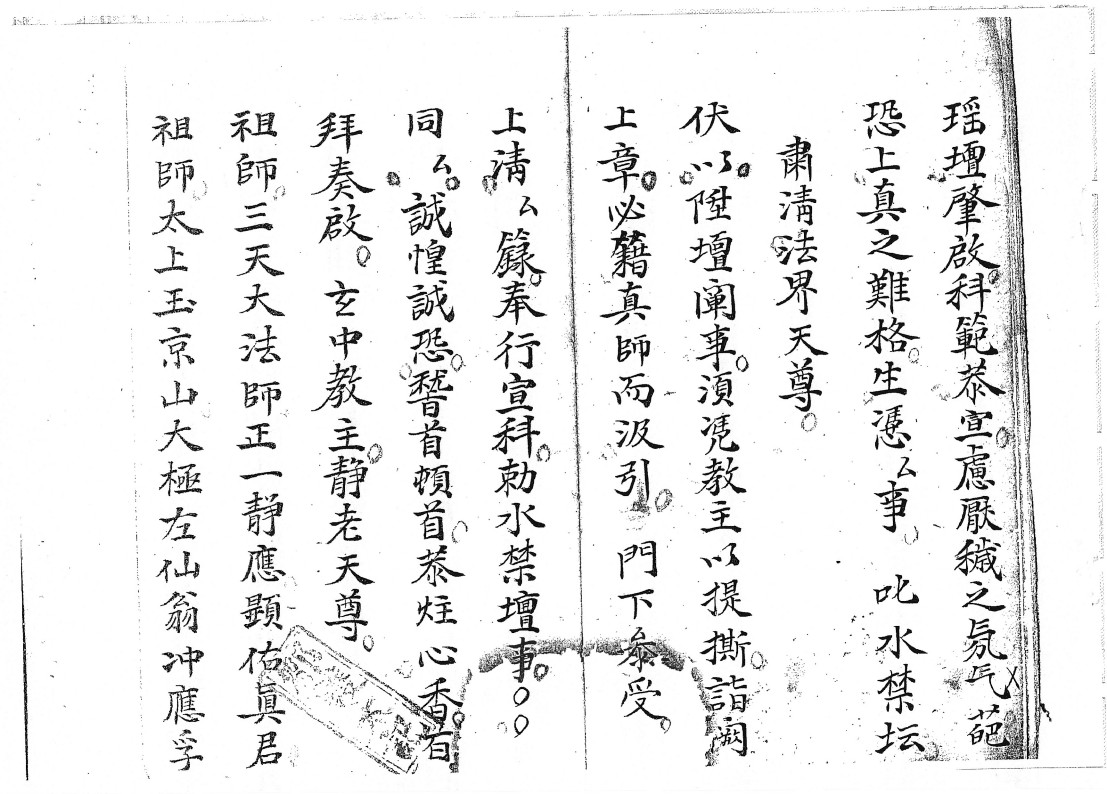 瑶壇肇啟科範恭宣慮厭穢之氛气葩
恐上真之難格生慿厶事 叱水禁坛
肅清法界天尊
伏以陞壇闡事須凴教主以提撕詣闕
上章必藉真師而汲引 門下叅受
上清厶籙奉行宣科勅水禁壇事
同厶誠惶誠恐𥡴首頓首恭炷心香百
拜奏啟 玄中教主静老天尊
祖師三天大法師正一静應顕佑真君
祖師太上玉京山大極左仙翁冲應孚